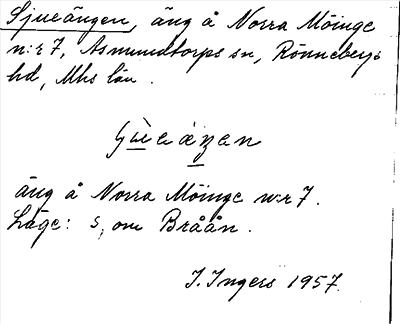 Sjueängen, äng å Norra Möinge
n:r 7, Asmundtorps sn, Rönnebergs
hd, Mhs län.
äng å Norra Möinge n:r 7.
Läge: s, om Bråån.
I. Ingers 1957.